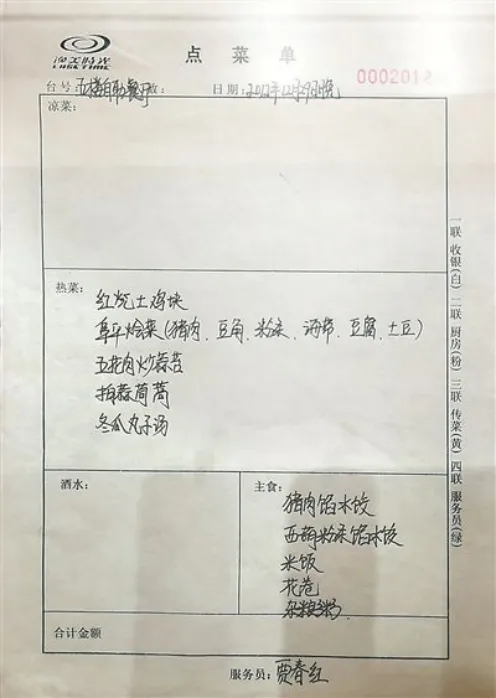 渔美时光
LUSK TIME
点菜单
0002012
台号:五楼自助餐厅 数: 日期:2012年12月29日晚
凉菜:
热菜:
红烧土鸡块
阜平烩菜(猪肉、豆角、粉条、海带、豆腐、土豆)
五花肉炒蒜苔
拍蒜茼蒿
冬瓜丸子汤
酒水:
主食:
猪肉馅水饺
西葫粉条馅水饺
米饭
花卷
杂粮粥
合计金额
服务员:贾春红
一联 收银(白) 二联 厨房(粉) 三联 传菜(黄) 四联 服务员(绿)